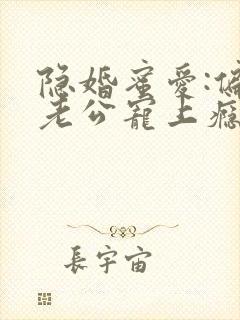 隐婚蜜爱:偏
老公寵上瘾
長宇宙